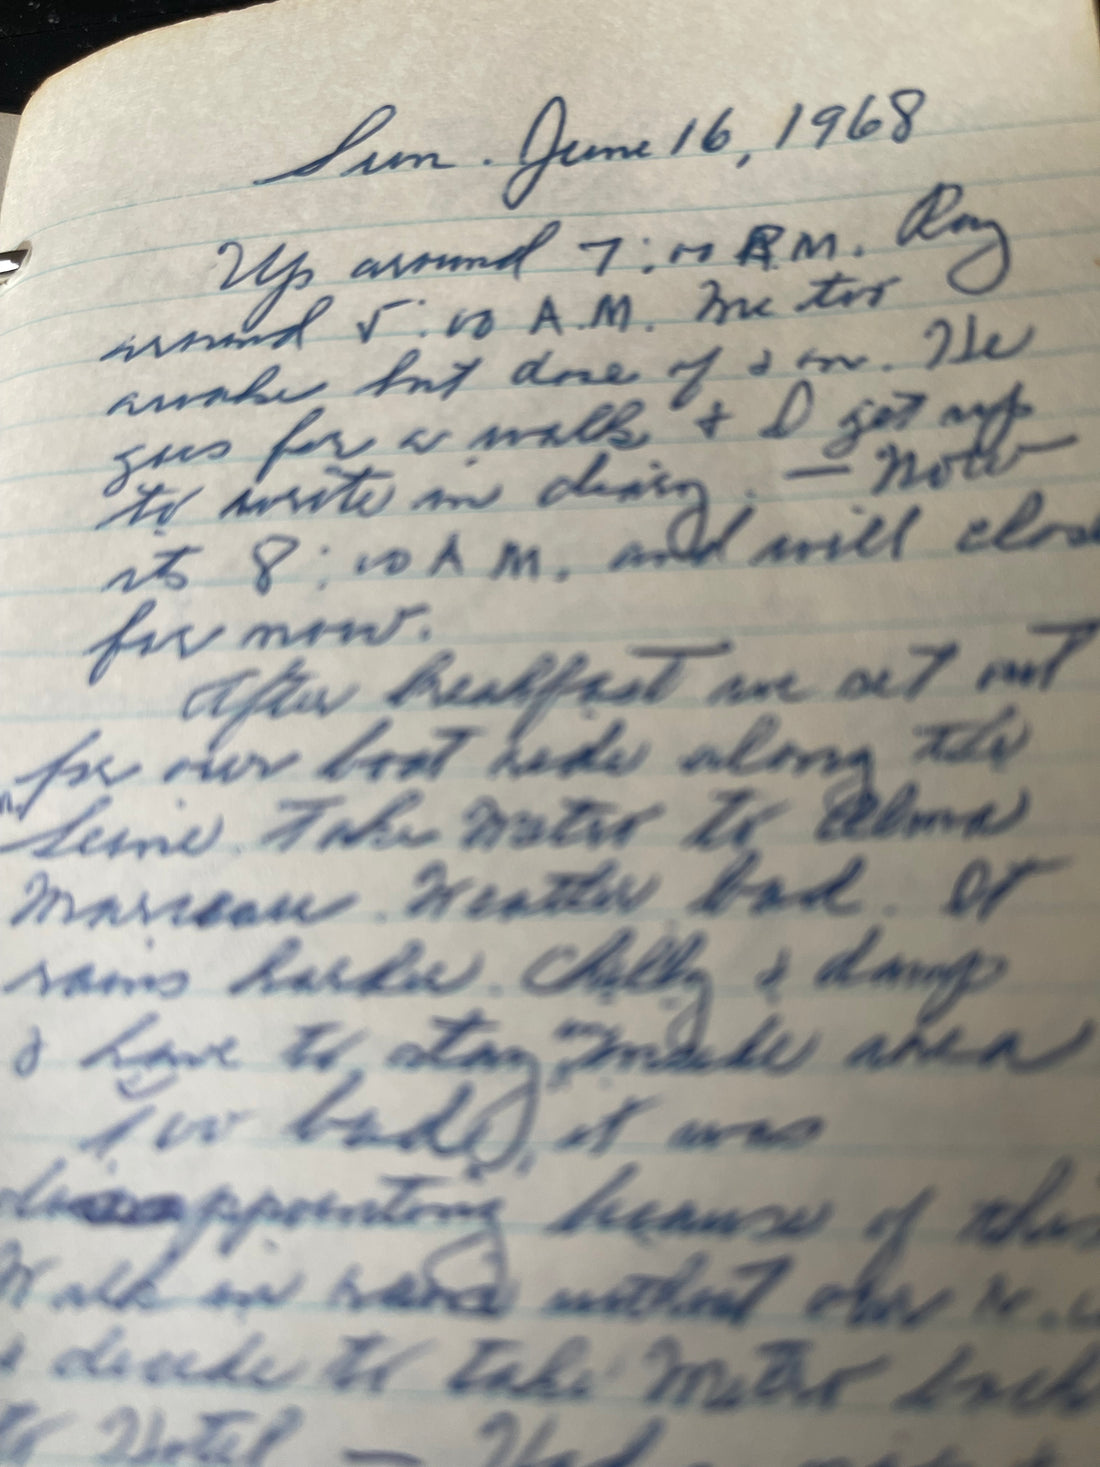 Sun. June 16, 1968
Up around 7:00 A.M. Ray
around 5:00 A.M. Me too
awake but doze off & on. He
goes for a walk & I get up
to write in diary. — Now
its 8:10 A M. and will close
for now.
After breakfast we set out
for our boat ride along the
Seine. Take Metro to Alma
Marceau. Weather bad. It
rains harder. Chilly & damp
& have to stay inside area
Too bad, it was
disappointing because of this
Walk in rain without our
& decide to take Metro back
to Hotel — Had